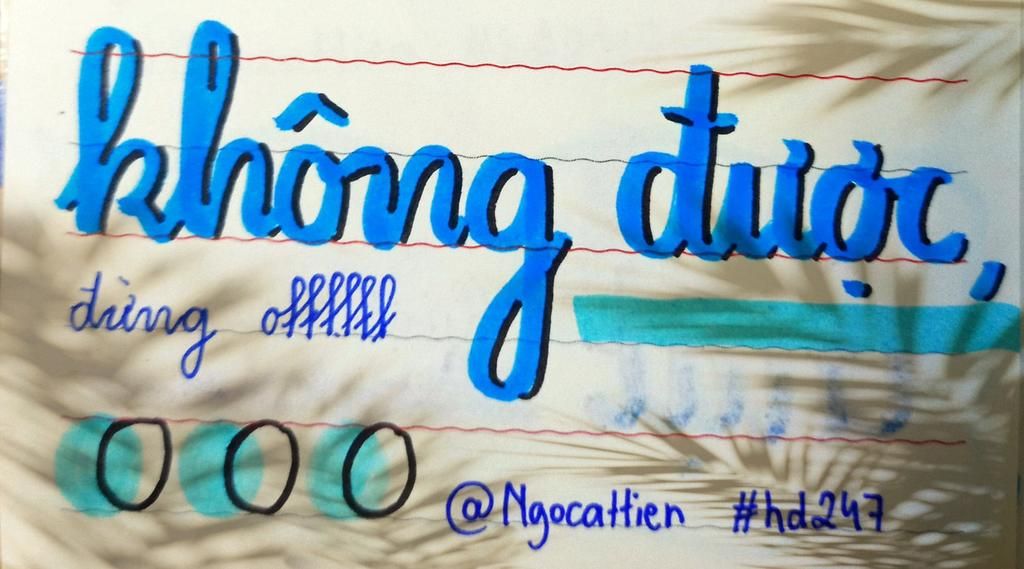 không được,
đừng offffff
OOO
@Ngocattien #hd247